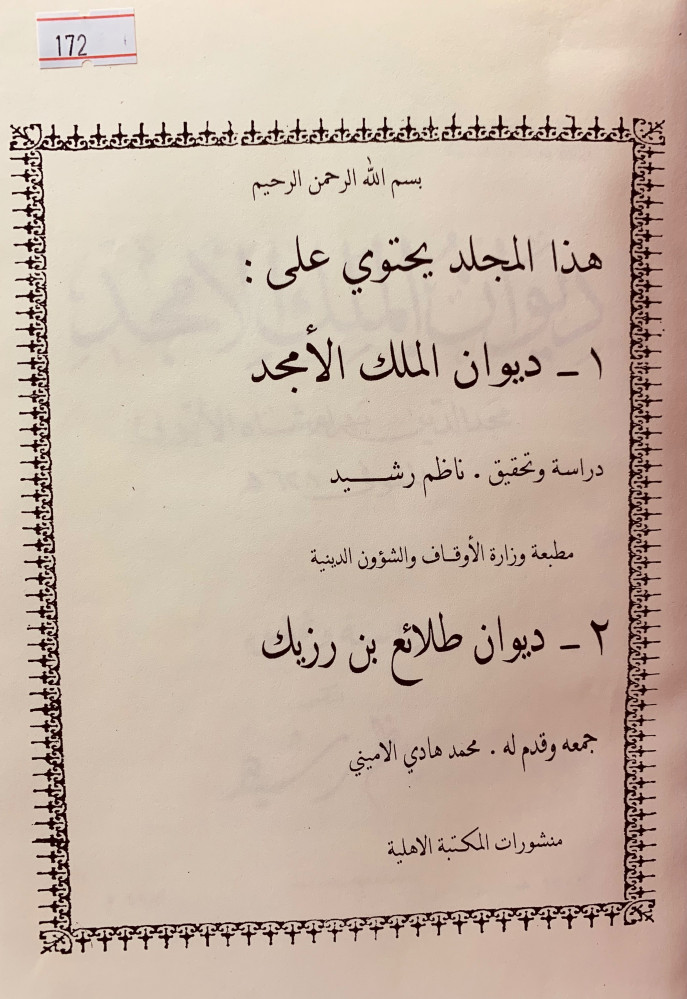 172
بسم الله الرحمن الرحيم
هذا المجلد يحتوي على :
١ ـ ديوان الملك الأمجد
دراسة وتحقيق . ناظم رشـــيد
مطبعة وزارة الأوقـاف والشؤون الدينية
٢ ـ ديوان طلائع بن رزيك
جمعه وقدم له . محمد هادي الاميني
منشورات المكتبة الاهلية